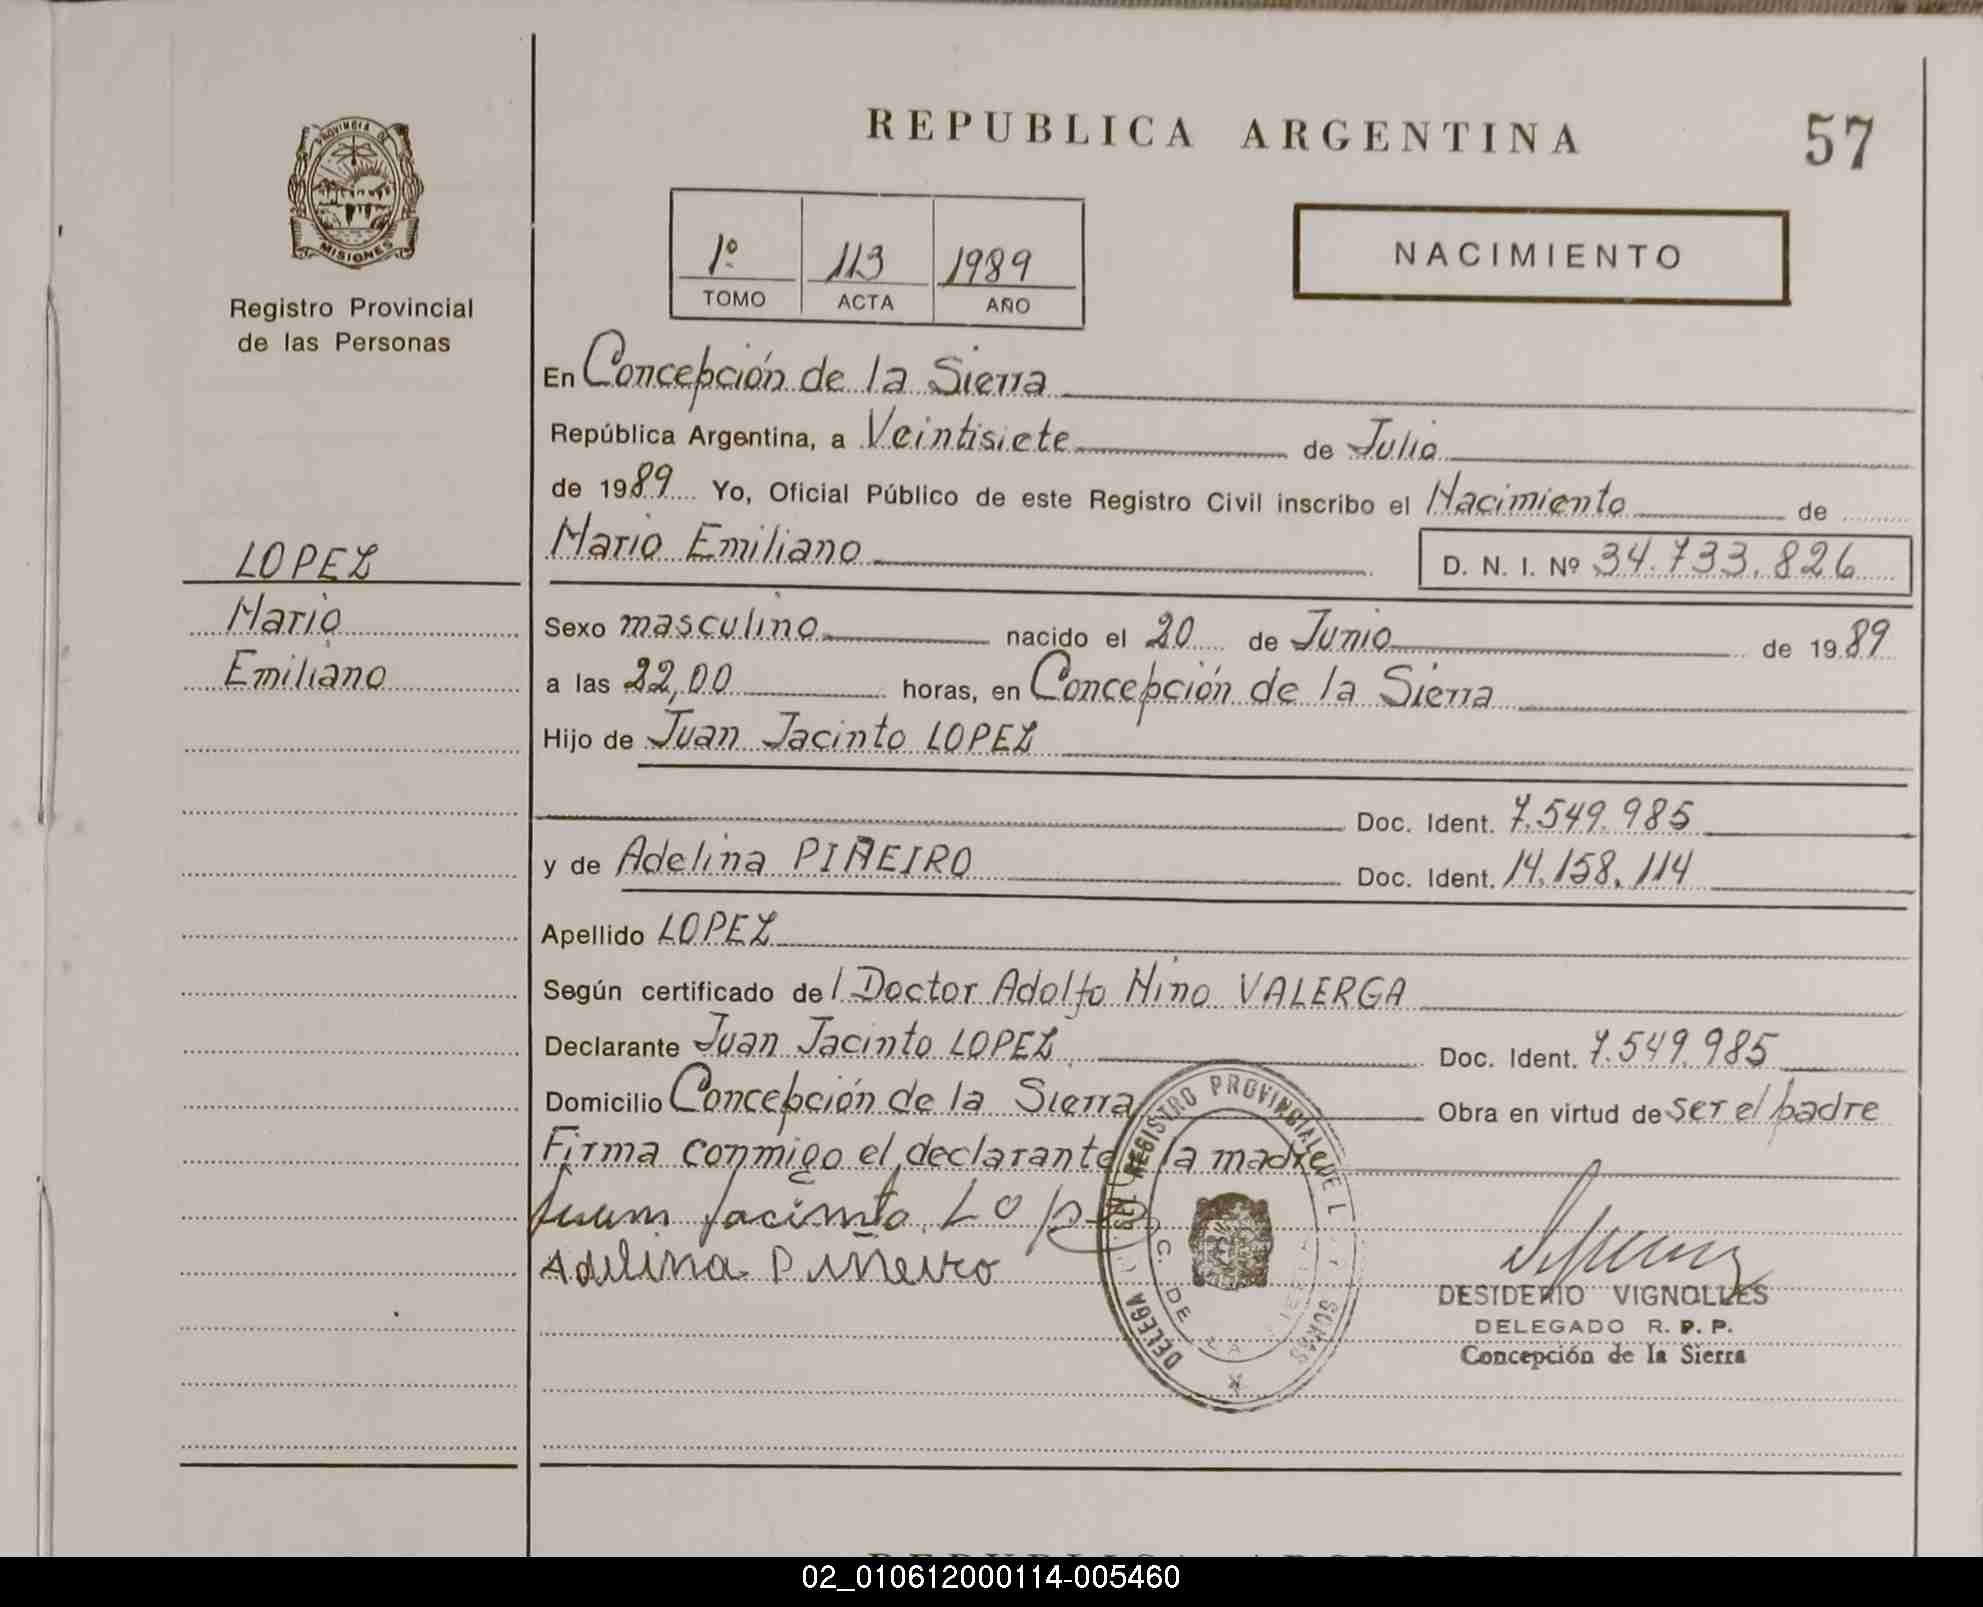 REPUBLICA ARGENTINA
57
PROVINCIA DE
MISIONES
Registro Provincial
de las Personas
1º 113 1989
TOMO ACTA AÑO
NACIMIENTO
En Concepción de la Sierra
República Argentina, a Veintisiete de Julio
de 1989 Yo, Oficial Público de este Registro Civil inscribo el Nacimiento de
Mario Emiliano D. N. I. Nº 34.733.826
LOPEZ
Mario
Emiliano
Sexo masculino nacido el 20 de Junio de 1989
a las 22,00 horas, en Concepción de la Sierra
Hijo de Juan Jacinto LOPEZ
Doc. Ident. 7.549.985
y de Adelina PIÑEIRO Doc. Ident. 14.158.114
Apellido LOPEZ
Según certificado del Doctor Adolfo Nino VALERGA
Declarante Juan Jacinto LOPEZ Doc. Ident. 7.549.985
Domicilio Concepción de la Sierra Obra en virtud de ser el padre
Firma conmigo el declarante la madre
Juan Jacinto Lopez
Adelina Piñeiro
REGISTRO PROVINCIAL DE L
DELEGA
C. DE LA
DESIDERIO VIGNOLLES
DELEGADO R. P. P.
Concepción de la Sierra
02_010612000114-005460